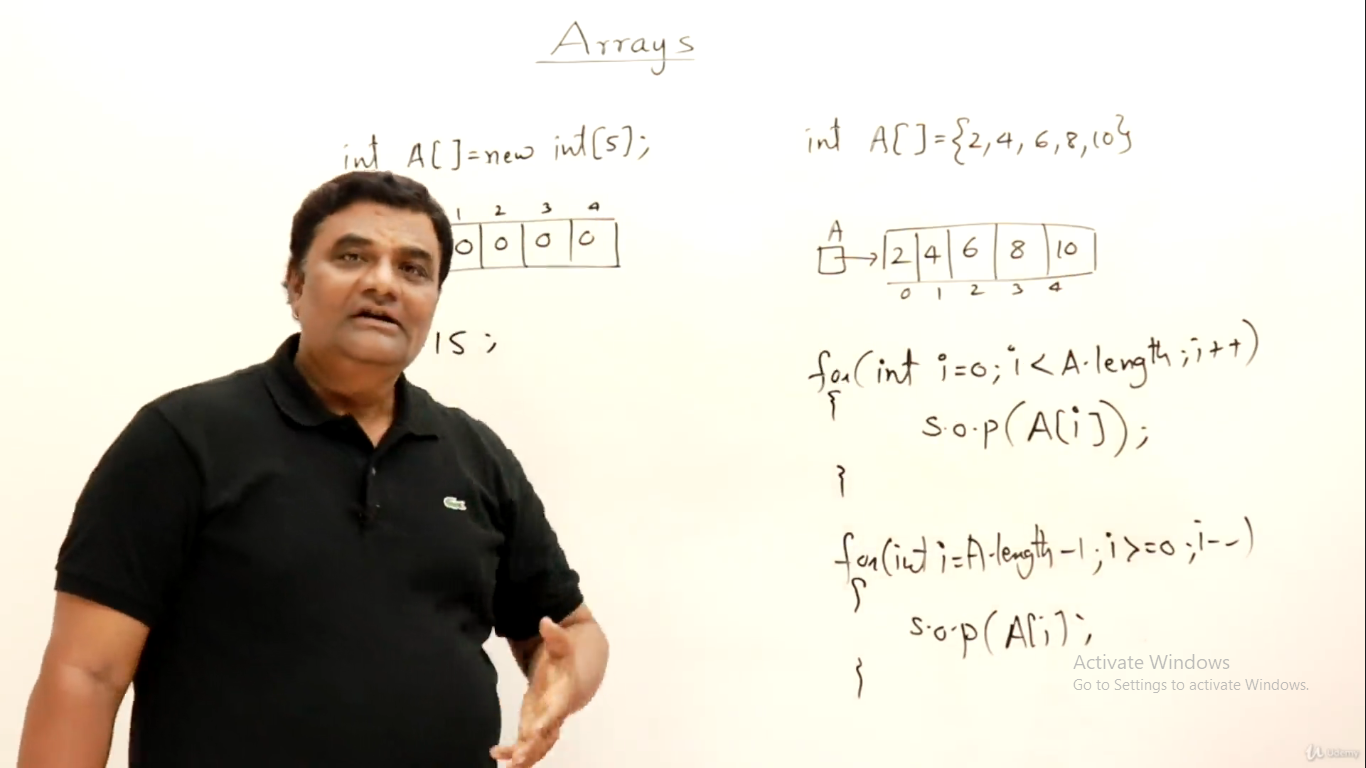 Arrays
int A[]=new int[5];
1 2 3 4
0 0 0 0
15;
int A[]={2,4,6,8,10}
A
2 4 6 8 10
0 1 2 3 4
for(int i=0;i<A.length;i++)
{
s.o.p(A[i]);
}
for(int i=A.length-1;i>=0;i--)
{
s.o.p(A[i);
}
Activate Windows
Go to Settings to activate Windows.
Udemy